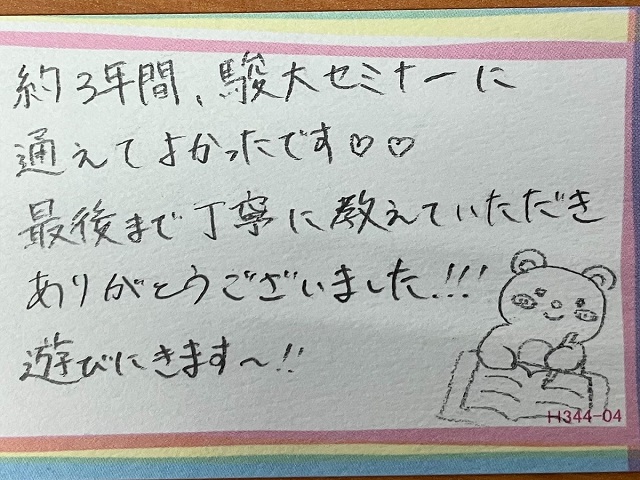 約3年間、駿大セミナーに
通えてよかったです♡♡
最後まで丁寧に教えていただき
ありがとうございました!!!
遊びにきます〜!!
H344-04